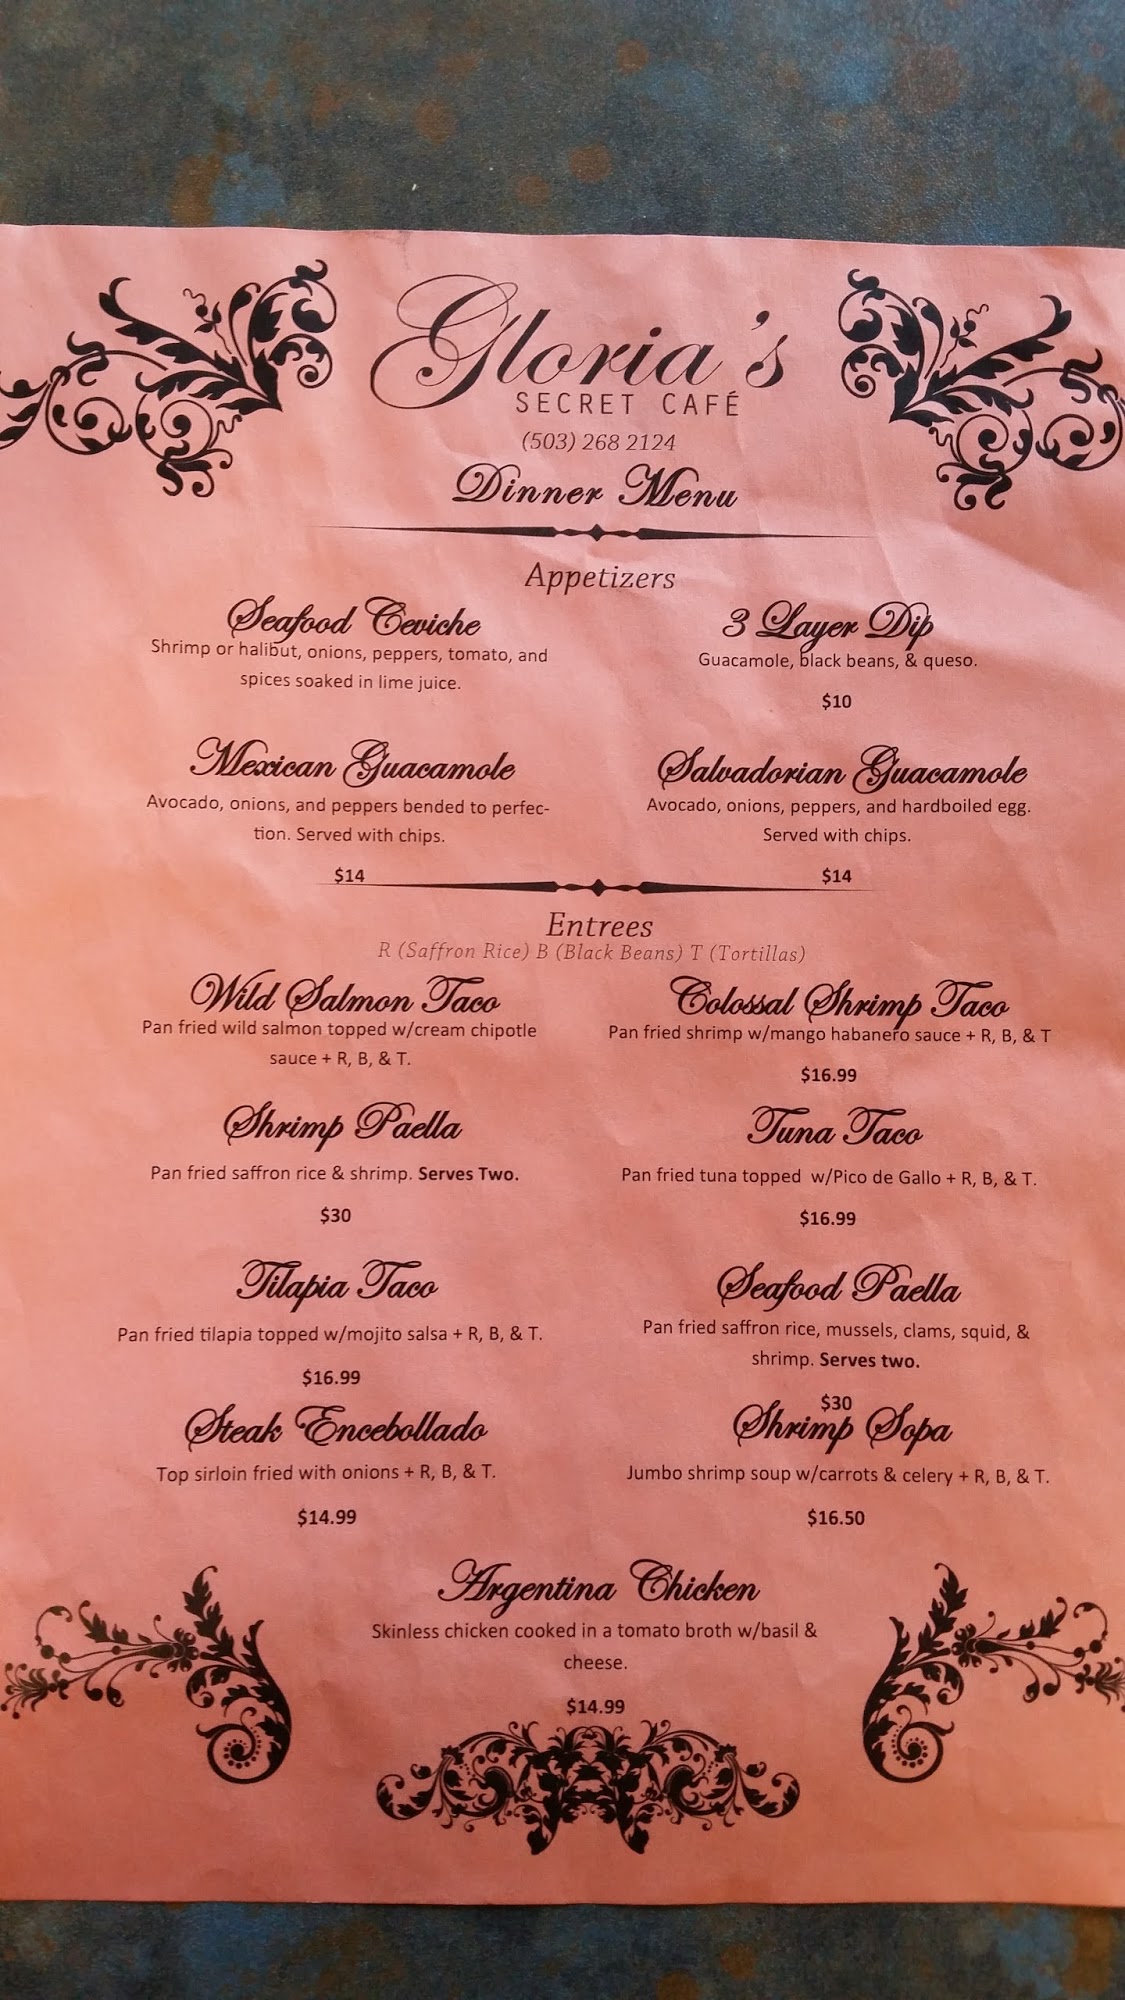 Gloria's
SECRET CAFÉ
(503) 268 2124
Dinner Menu
Appetizers
Seafood Ceviche
Shrimp or halibut, onions, peppers, tomato, and
spices soaked in lime juice.
3 Layer Dip
Guacamole, black beans, & queso.
$10
Mexican Guacamole
Avocado, onions, and peppers bended to perfec-
tion. Served with chips.
$14
Salvadorian Guacamole
Avocado, onions, peppers, and hardboiled egg.
Served with chips.
$14
Entrees
R (Saffron Rice) B (Black Beans) T (Tortillas)
Wild Salmon Taco
Pan fried wild salmon topped w/cream chipotle
sauce + R, B, & T.
Colossal Shrimp Taco
Pan fried shrimp w/mango habanero sauce + R, B, & T
$16.99
Shrimp Paella
Pan fried saffron rice & shrimp. Serves Two.
$30
Tuna Taco
Pan fried tuna topped w/Pico de Gallo + R, B, & T.
$16.99
Tilapia Taco
Pan fried tilapia topped w/mojito salsa + R, B, & T.
$16.99
Seafood Paella
Pan fried saffron rice, mussels, clams, squid, &
shrimp. Serves two.
$30
Steak Encebollado
Top sirloin fried with onions + R, B, & T.
$14.99
Shrimp Sopa
Jumbo shrimp soup w/carrots & celery + R, B, & T.
$16.50
Argentina Chicken
Skinless chicken cooked in a tomato broth w/basil &
cheese.
$14.99